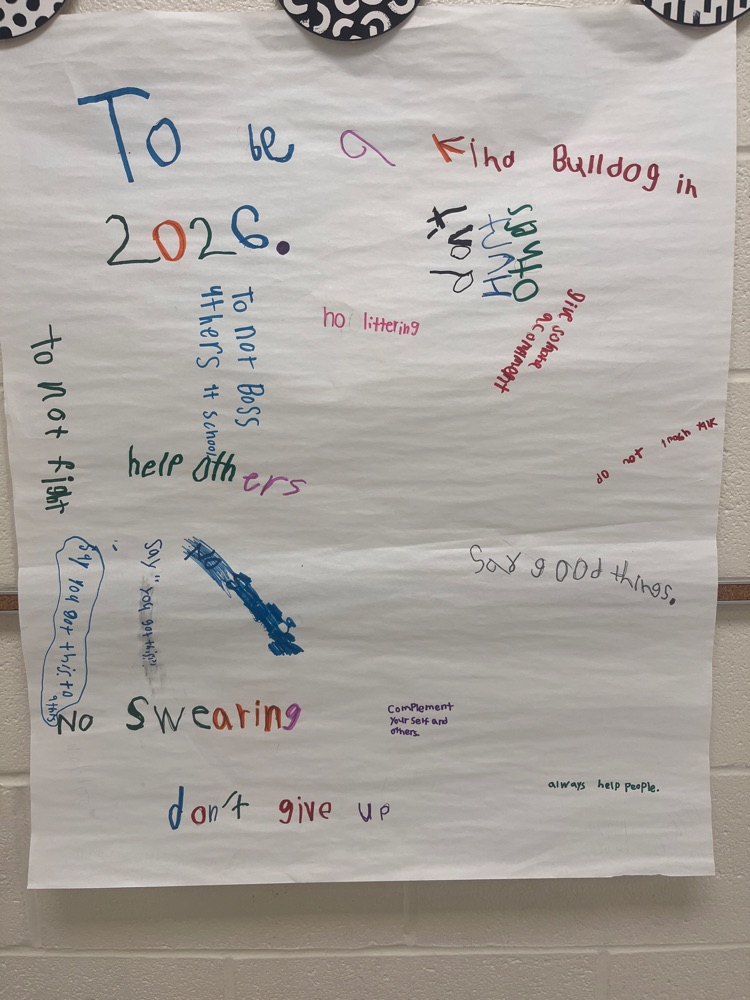 To be a Kind Bulldog in
2026.
Don't
HURT
Others
no littering
give somone
a compliment
To not Boss
others at school
to not fight
help others
do not trash talk
Say good things.
Say "You got this"
Say You got this to
No Swearing
Complement
Your self and
others.
always help people.
don't give up